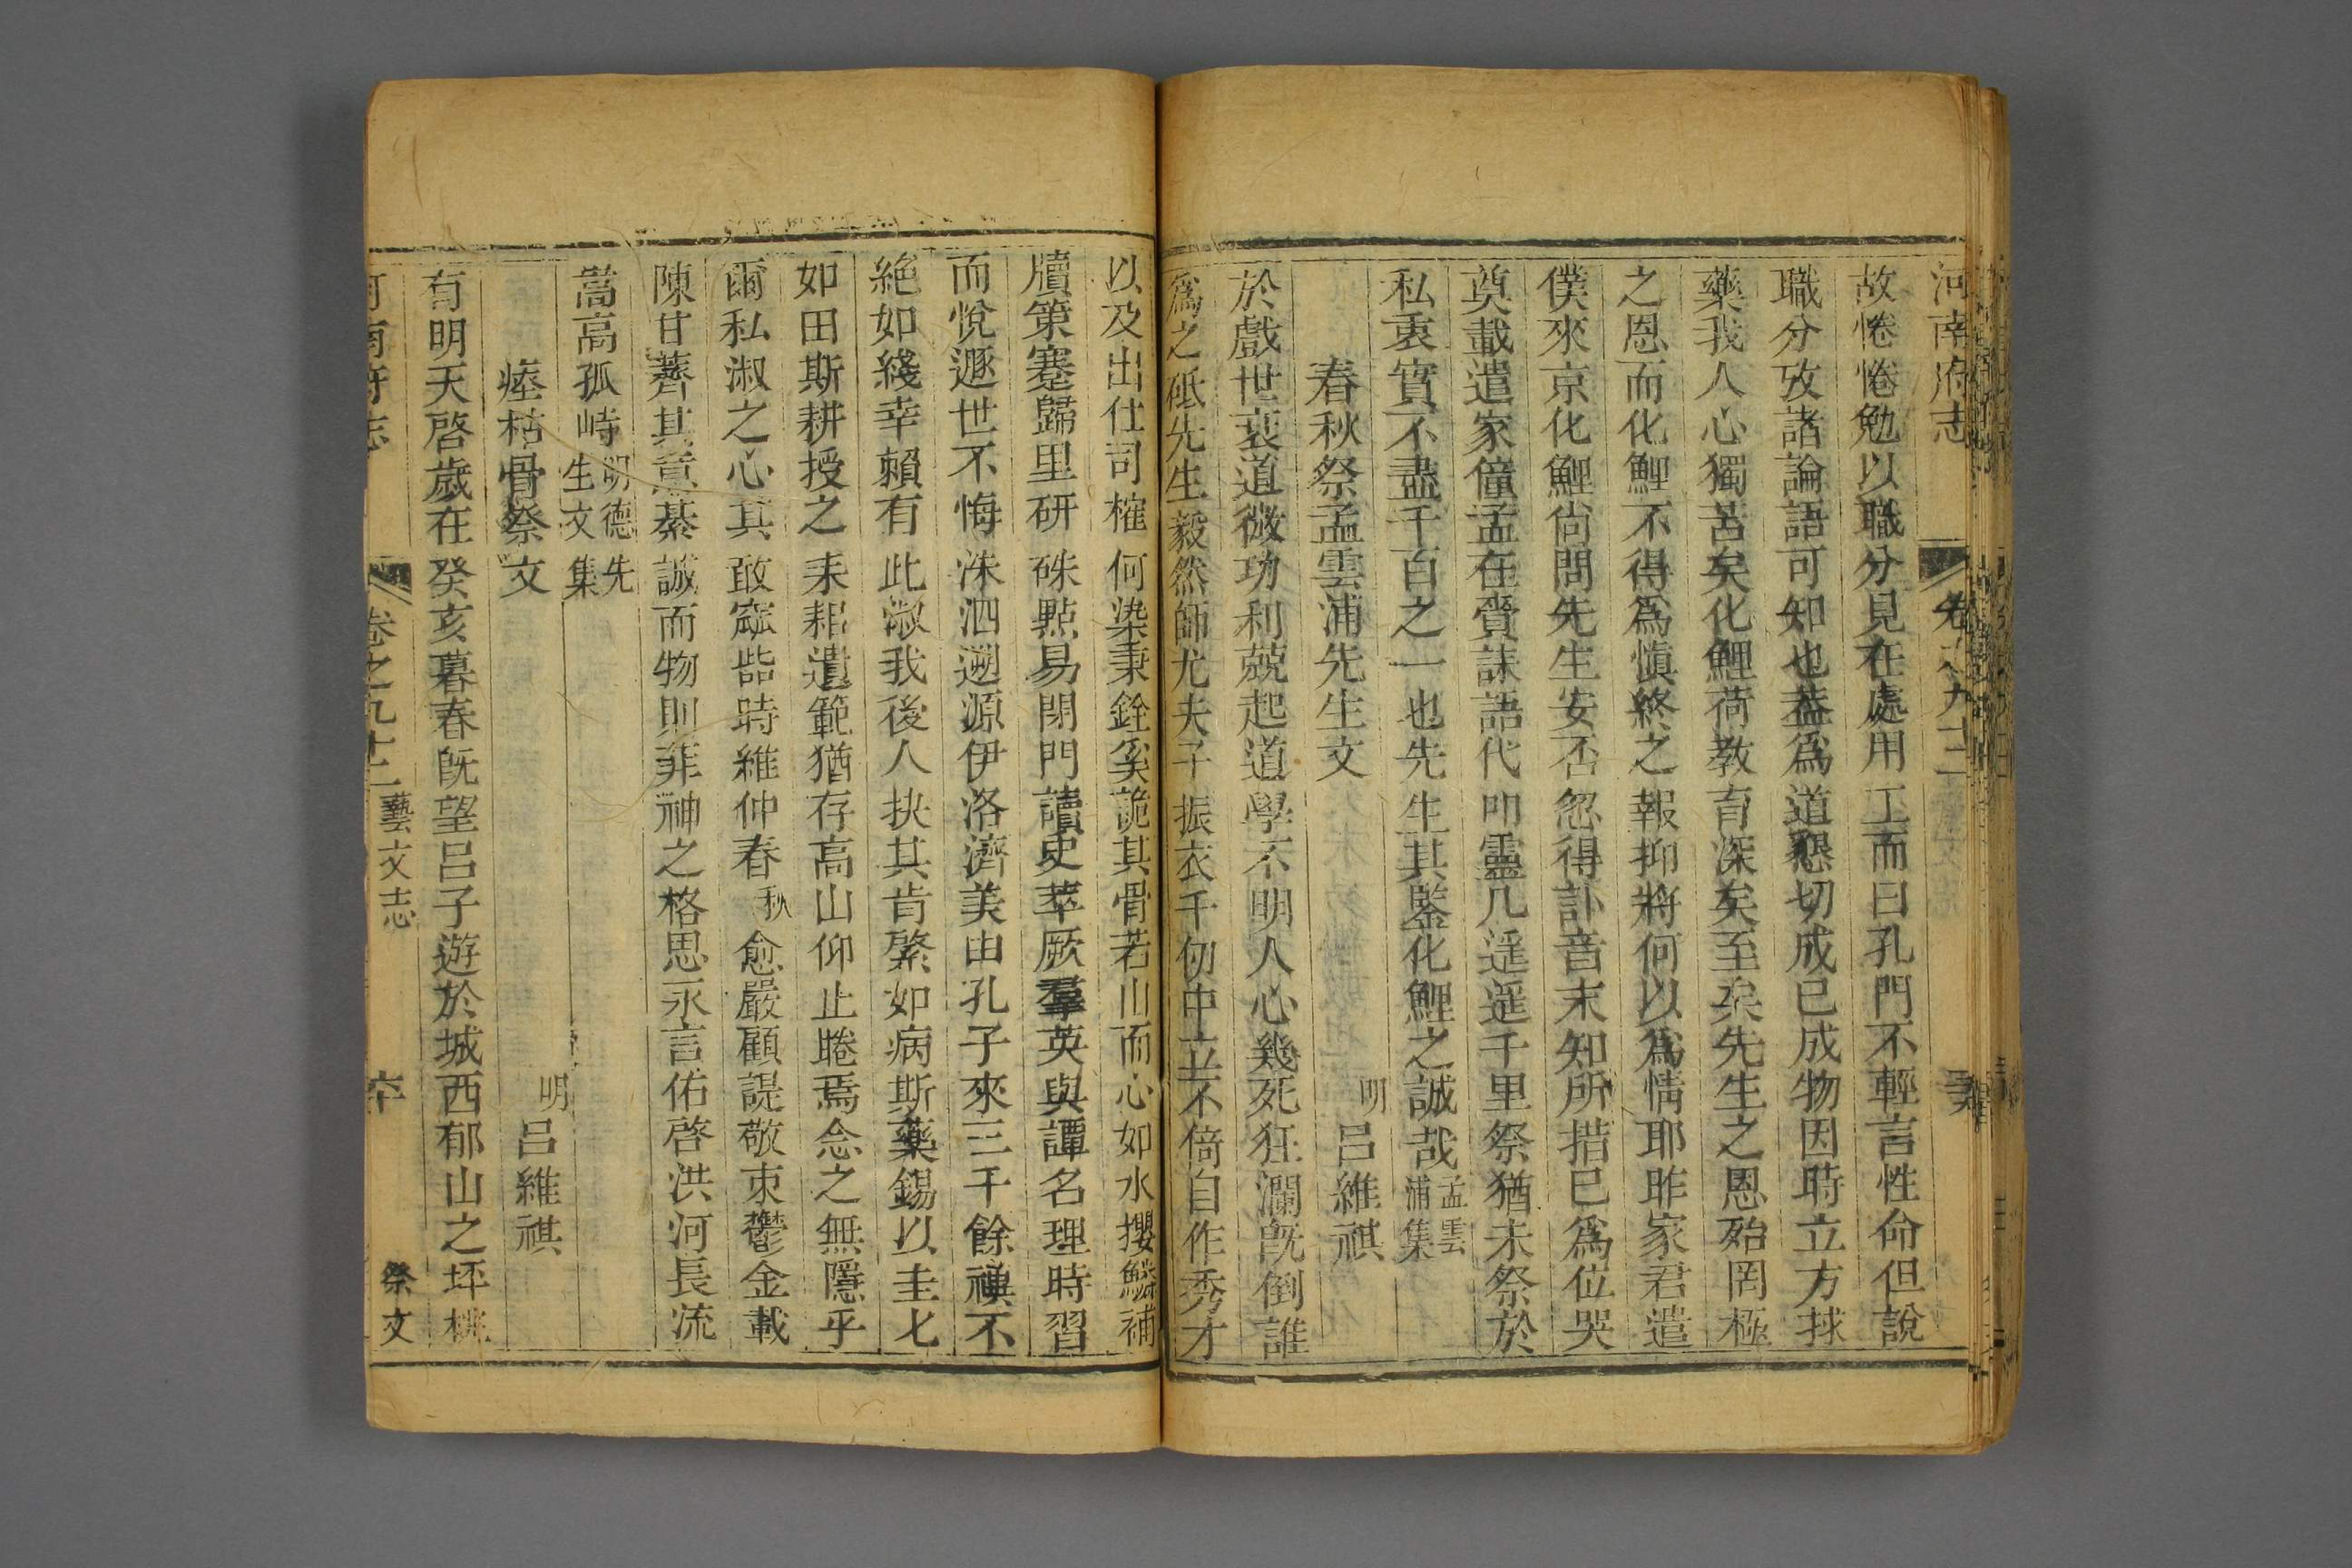 河南府志 卷之九十二
故惓惓勉以職分見在處用工而曰孔門不輕言性命但說
職分攷諸論語可知也蓋爲道懇切成已成物因時立方捄
藥我人心獨苦矣化鯉荷教育深矣至矣先生之恩殆罔極
之恩而化鯉不得爲愼終之報抑將何以爲情耶昨家君遣
僕來京化鯉尙問先生安否忽得訃音末知所措已爲位哭
奠載遣家僮孟在賫誄語代叩靈几遥遥千里祭猶未祭於
私衷實不盡千百之一也先生其鑒化鯉之誠哉孟雲浦集
春秋祭孟雲浦先生文 明 呂維祺
於戲世衰道微功利兢起道學不明人心幾死狂瀾旣倒誰
爲之砥先生毅然師尤夫子振衣千仞中立不倚自作秀才
以及出仕司權何染秉銓奚詭其骨若山而心如水攖鱗補
牘策蹇歸里研硃點易閉門讀史萃厥羣英與譚名理時習
而悅遯世不悔洙泗遡源伊洛濟美由孔子來三千餘禩不
絕如綫幸賴有此淑我後人抉其肯綮如病斯藥錫以圭匕
如田斯耕授之耒耜遺範猶存高山仰止睠焉念之無隱乎
爾私淑之心其敢窳啙時維仲春秋愈嚴顧諟敬束鬱金載
陳甘薺其意綦誠而物則菲神之格思永言佑啓洪河長流
嵩高孤峙明德先生文集
瘞枯骨祭文 明 呂維祺
有明天啓歲在癸亥暮春旣望呂子遊於城西郁山之坪桃
河南府志 卷之九十二 藝文志 六十 祭文